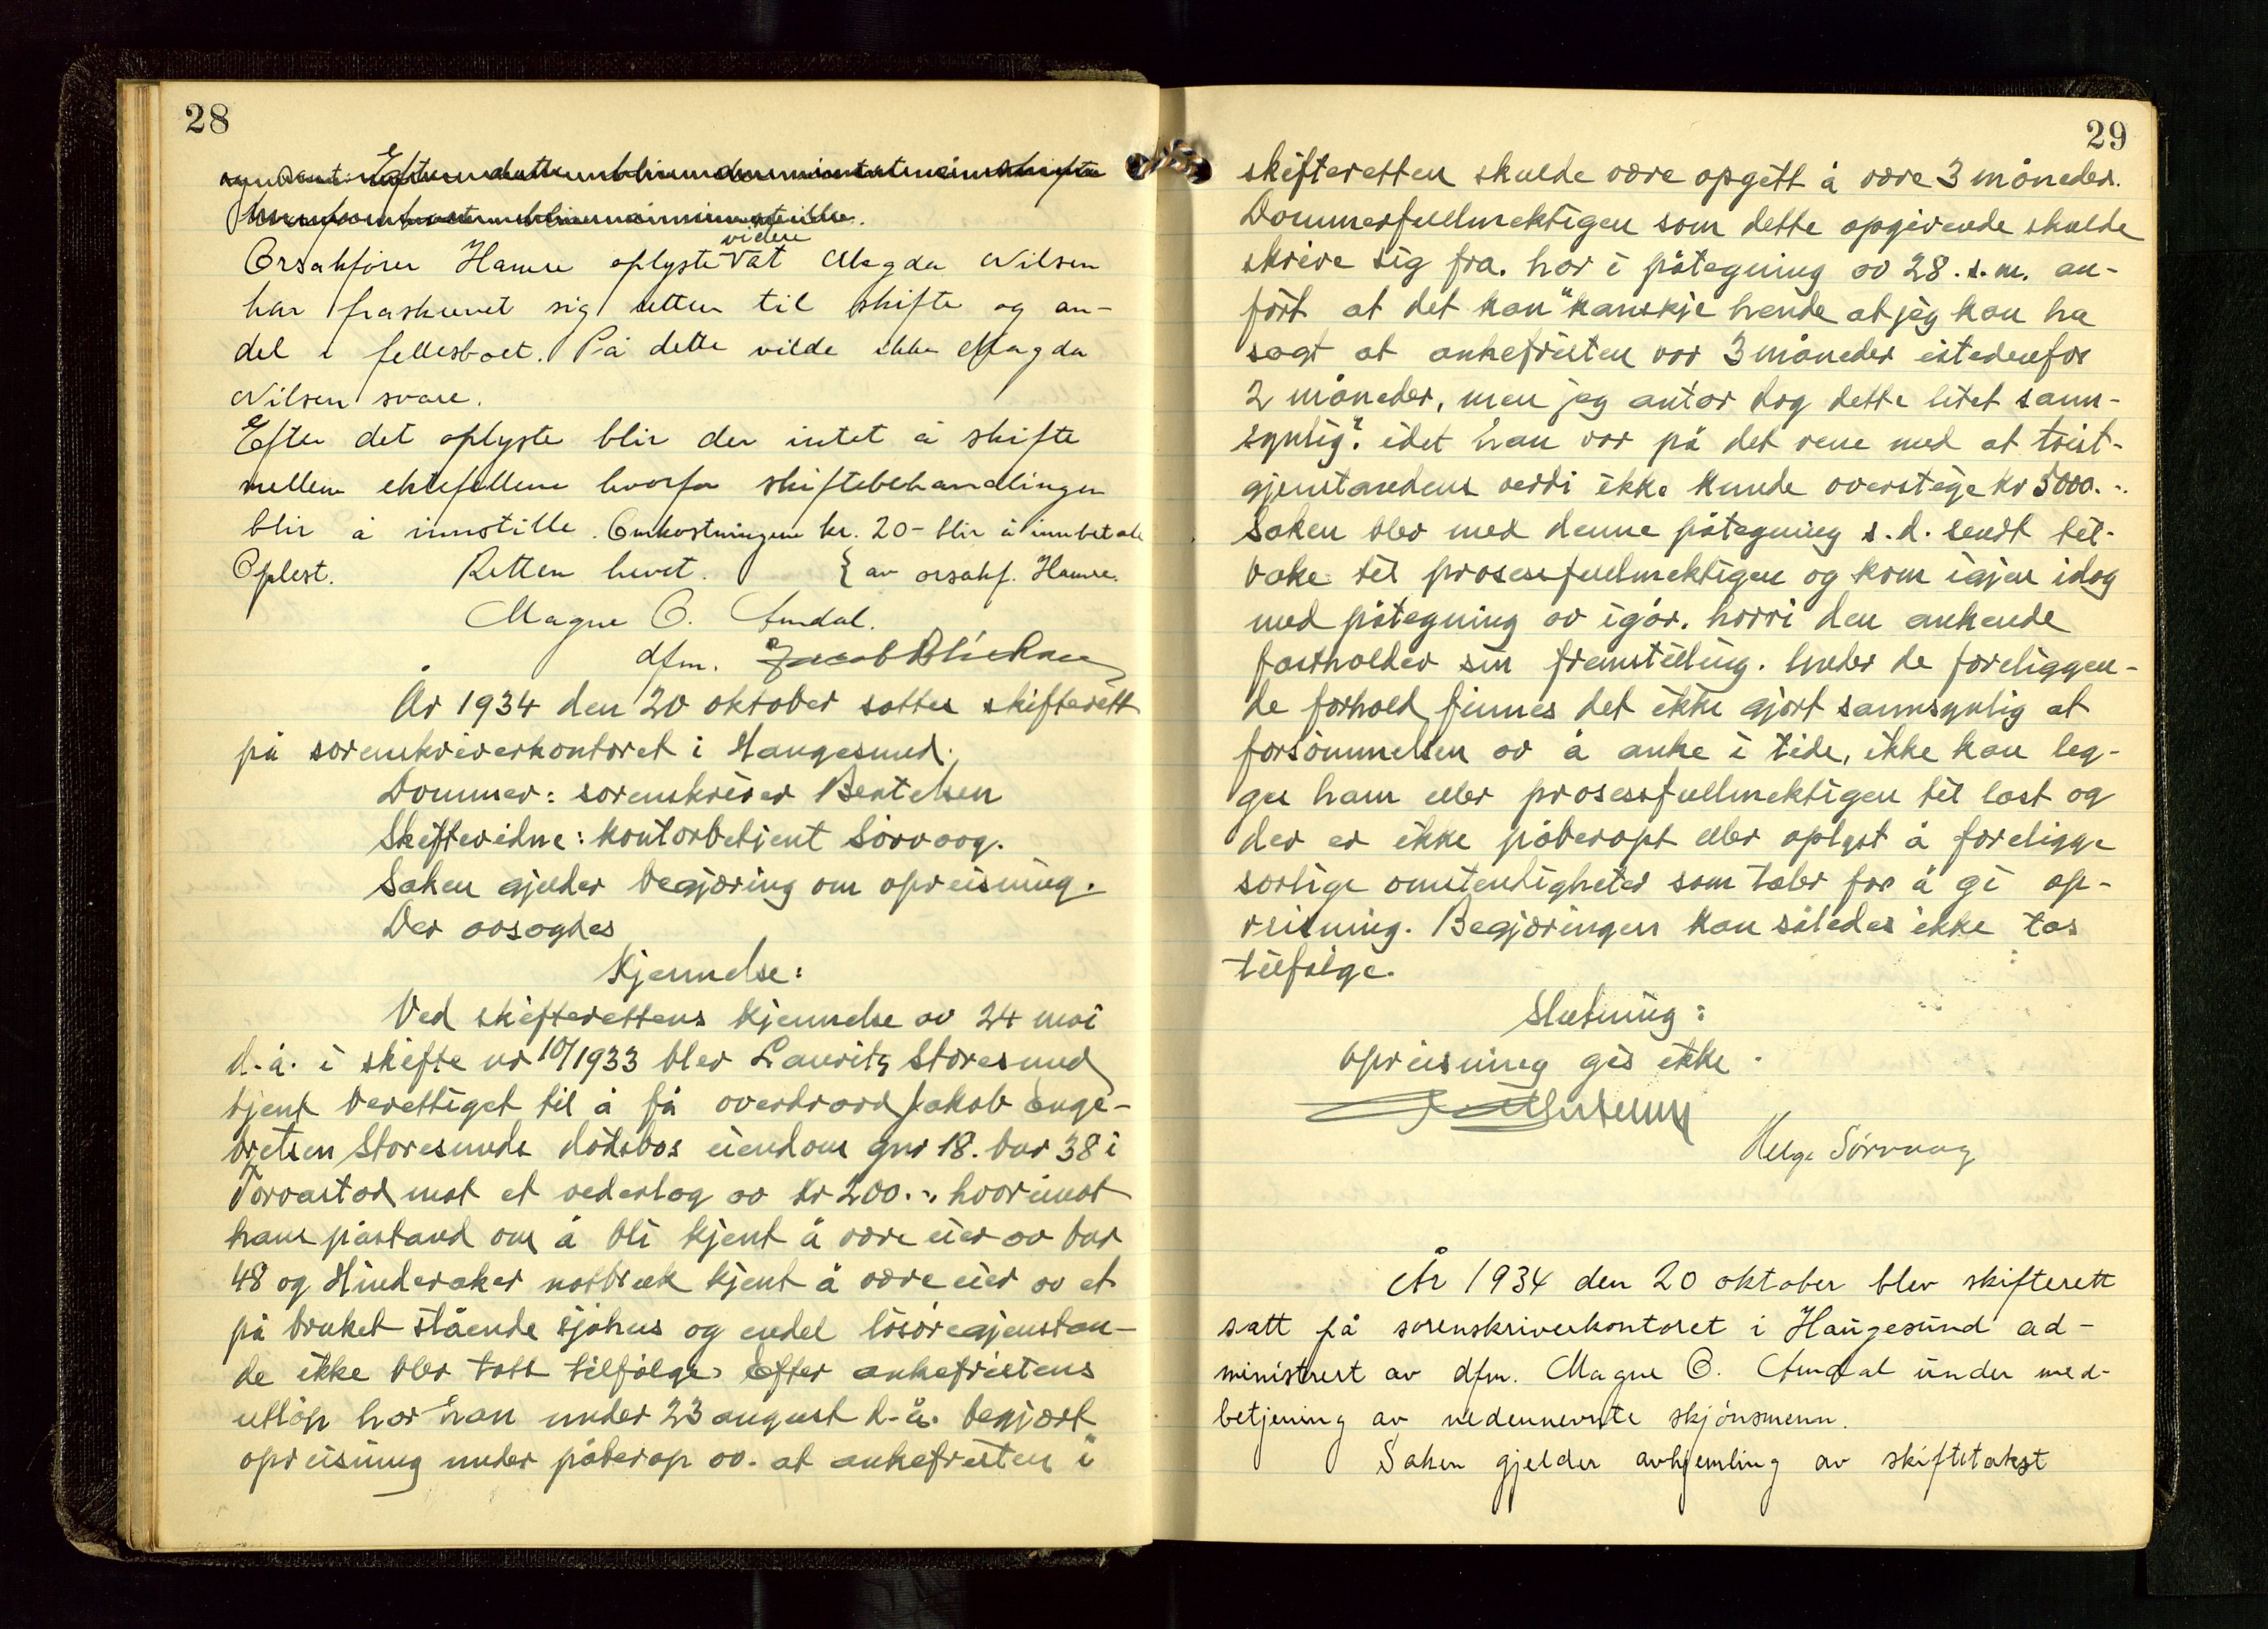 28
Efter dette blir der intet å skifte
Orsakfører Hamre oplyste videre at Magda Nilsen
har fraskrevet sig retten til skifte og an-
del i fellesboet. På dette vilde ikke Magda
Nilsen svare.
Efter det oplyste blir der intet å skifte
mellem ektefellene hvorfor skiftebehandlingen
blir å innstille. Omkostningene kr. 20- blir å innbetale
Oplest. Retten hevet. { av orsakf. Hamre.
Magne O. Amdal.
dfm.
År 1934 den 20 oktober sattes skifterett
på sorenskriverkontoret i Haugesund.
Dommer: sorenskriver Bentelsen
Skiftevidne: kontorbetjent Sørvaag.
Saken gjelder begjæring om opreisning.
Der avsagdes
Kjennelse:
Ved skifterettens kjennelse av 24 mai
d.å. i skifte nr 10/1933 blev Lauritz Storesund
kjent berettiget til å få overdradd Jakob Inge-
bretsen Storesunds dødsbos eiendom gnr 18. bnr 38 i
Torvastad mot et vederlag av kr 200.-, hvorimot
hans påstand om å bli kjent å være eier av bnr
48 og Hinderaker notbruk kjent å være eier av et
på bruket stående sjøhus og endel løsøregjenstan-
de ikke blev tatt tilfølge. Efter ankefristens
utløp har han under 23 august d.å. begjært
opreisning under påberop av. at ankefristen i
29
skifteretten skulde være opgitt å være 3 måneder.
Dommerfullmektigen som dette opgivende skulde
skrive sig fra. har i påtegning av 28. s.m. an-
ført at det kan "kanskje hende at jeg kan ha
sagt at ankefristen var 3 måneder istedenfor
2 måneder, men jeg antar dog dette litet sann-
synlig". idet han var på det rene med at tvist-
gjenstandens verdi ikke kunde overstige kr 5000.-.
Saken blev med denne påtegning s.d. sendt til-
bake til prosessfullmektigen og kom igjen idag
med påtegning av igår. hvori den ankende
fastholder sin fremstilling. Under de foreliggen-
de forhold finnes det ikke gjort sannsynlig at
forsømmelsen av å anke i tide, ikke kan leg-
ges ham eller prosessfullmektigen til last og
der er ikke påberopt eller oplyst å foreligge
særlige omstendigheter som taler for å gi op-
reisning. Begjæringen kan således ikke tas
tilfølge.
Slutning:
Opreisning gis ikke.
Helge Sørvaag
År 1934 den 20 oktober blev skifterett
satt på sorenskriverkontoret i Haugesund ad-
ministrert av dfm. Magne O. Amdal under med-
betjening av nedennevnte skjønsmenn.
Saken gjelder avhjemling av skiftetakst